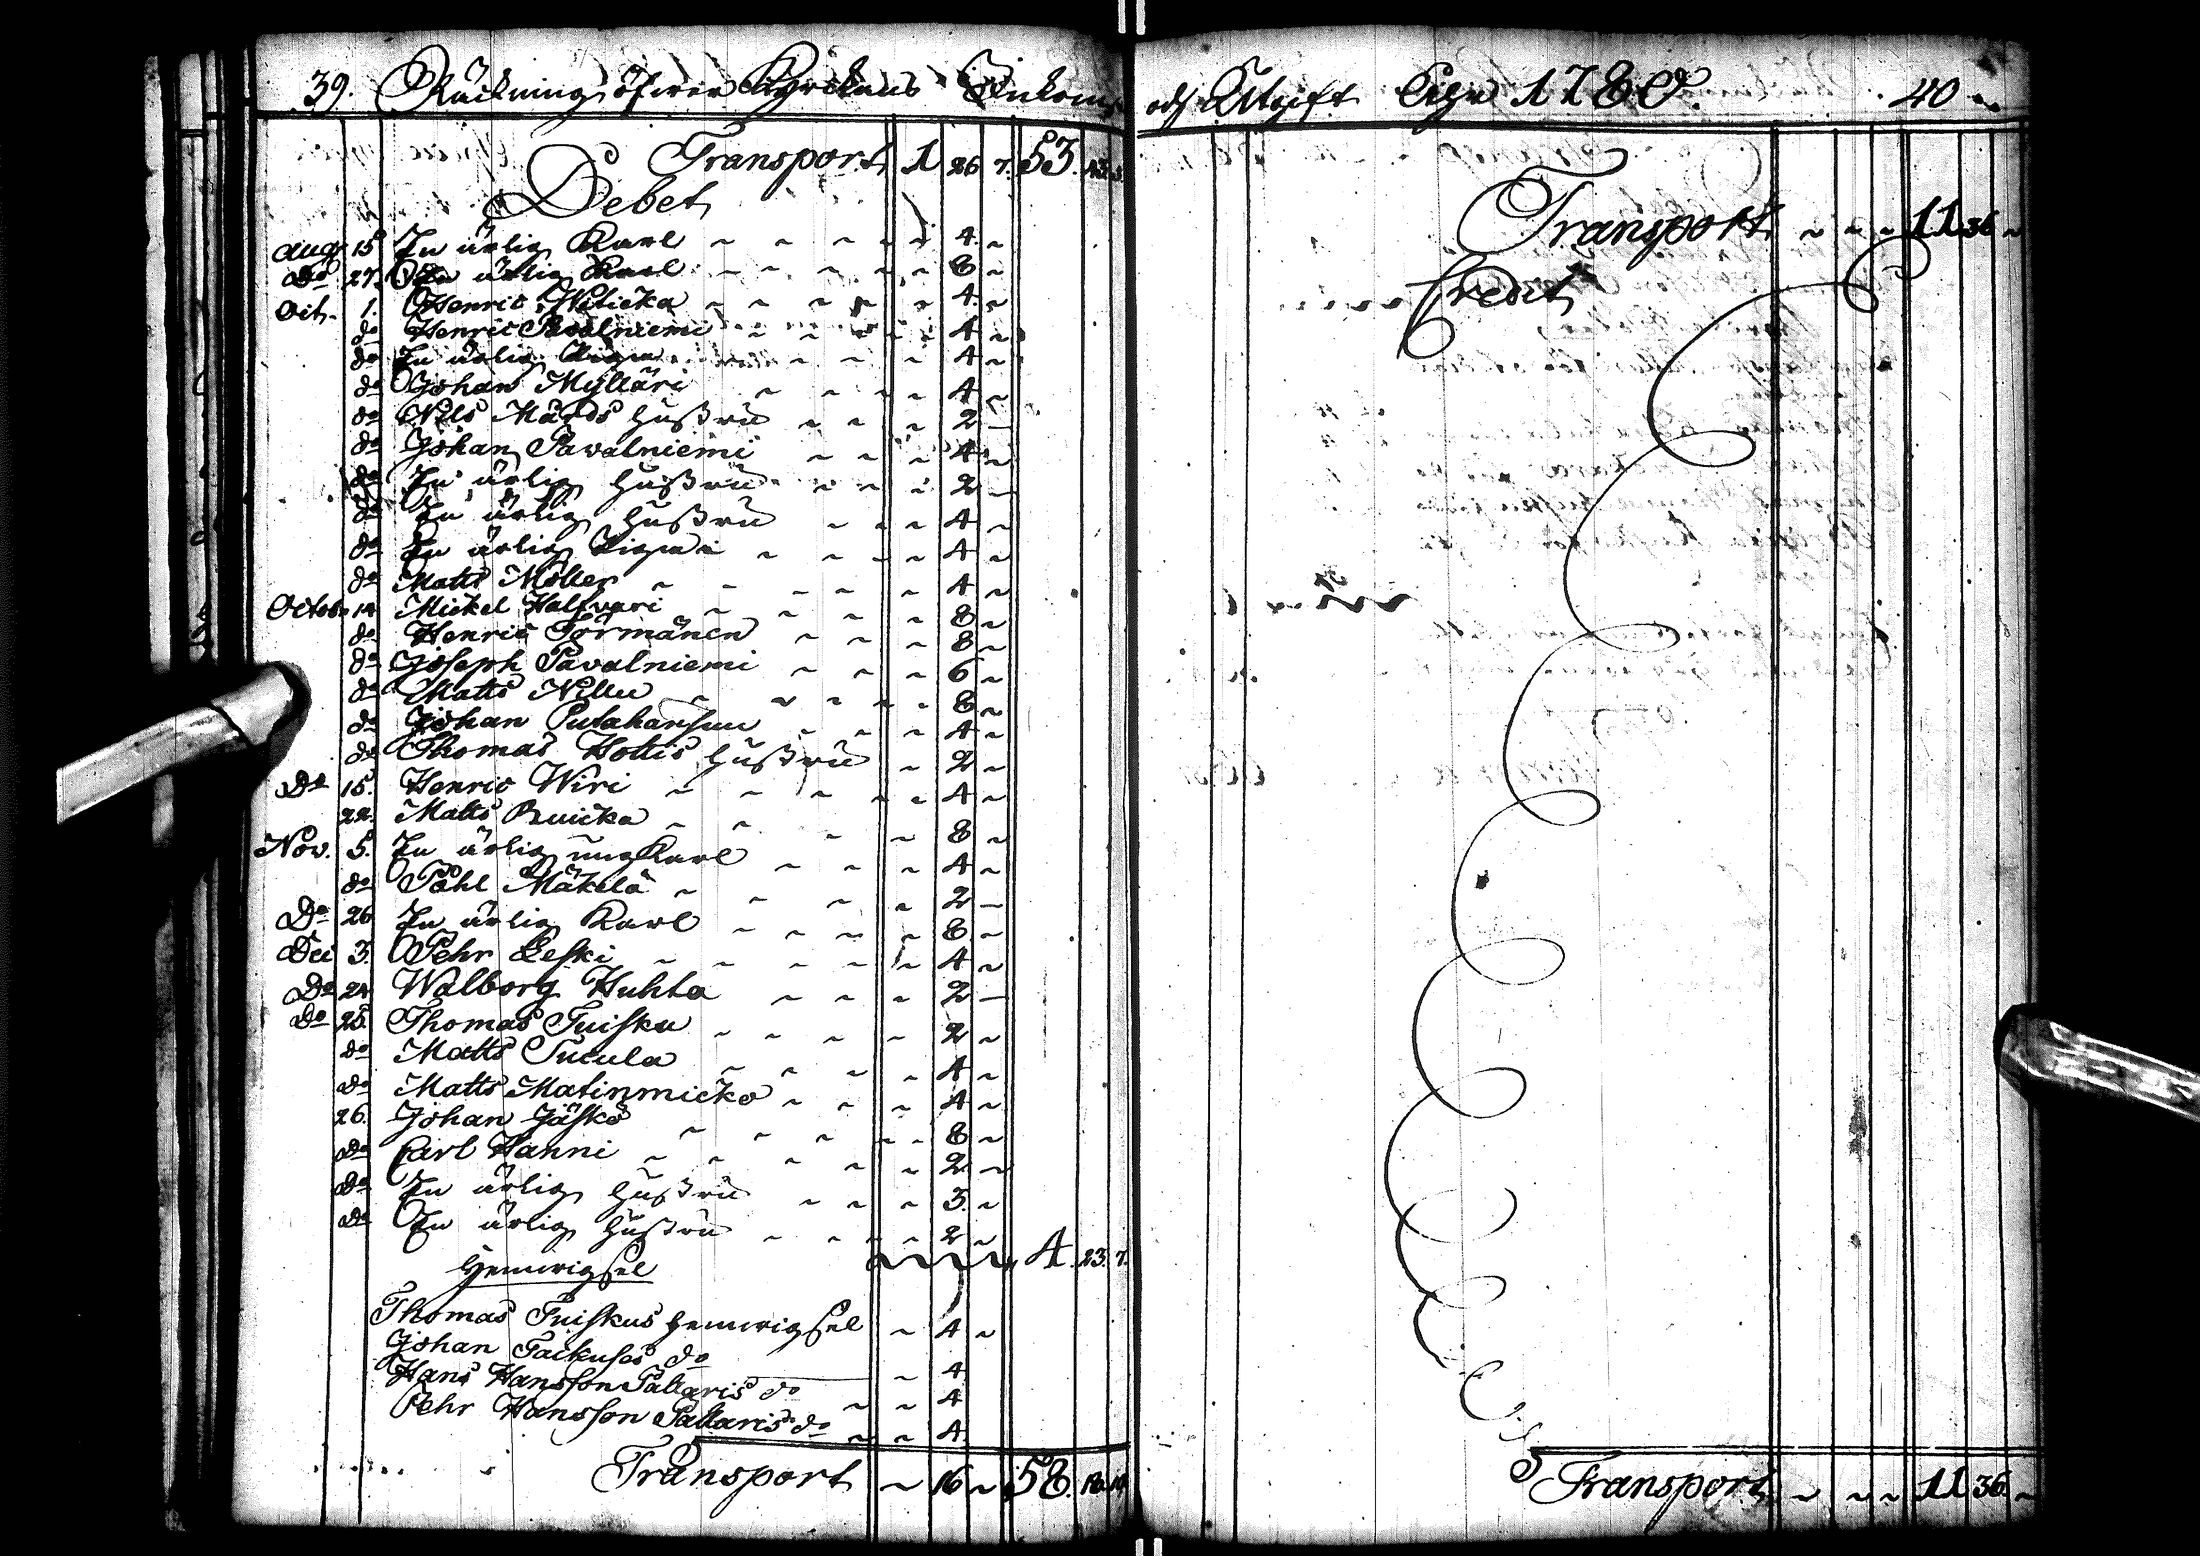 39. Räckning öfwer Kyrckans Inkomst
Transport 1 26 7. 53. 43. 3.
Debet
Aug 15 En ärlig Karl ~ ~ ~ ~ ~ 4. ~
Do 27. En ärlig Karl ~ ~ ~ ~ ~ 8 ~
Oct. 1. Henric ~ ~ ~ ~ ~ 4. ~
do Henric Pavalniemi ~ ~ ~ ~ 4 ~
do En ärlig Pigia ~ ~ ~ 4 ~
do Johan Mylläri ~ ~ ~ ~ 4 ~
do Nils Mårds Hustru ~ ~ ~ 2 —
do Johan Pavalniemi ~ ~ ~ 4 ~
do En ärlig Hustru ~ ~ ~ 2 —
do En ärlig Hustru ~ ~ ~ 4 ~
do En ärlig Piga ~ ~ ~ ~ 4 ~
do Matts Möller ~ ~ ~ ~ 4 ~
Octob. 14 Mickel Halfvari ~ ~ ~ ~ 8 ~
do Henric Törmänen ~ ~ ~ 8 ~
do Joseph Pavalniemi ~ ~ ~ 6 ~
do Matts Nillu ~ ~ ~ ~ 8 ~
do Johan Putahansuu ~ ~ ~ 4 ~
do Thomas Hottis Hustru ~ 2 ~
Do 15. Henric Wiri ~ ~ ~ ~ ~ 4 ~
22. Matts Ruicka ~ ~ ~ ~ 8 ~
Nov. 5. En ärlig ung Karl ~ ~ ~ 4 ~
do Påhl Mäkelä ~ ~ ~ ~ 2 —
Do 26 En ärlig Karl ~ ~ ~ ~ 8. ~
Dec 3. Pehr Leski ~ ~ ~ ~ ~ 4 ~
Do 24 Walborg Huhta ~ ~ ~ 2 —
Do 25. Thomas Tuisku ~ ~ ~ ~ 2 ~
do Matts Tucula ~ ~ ~ ~ 4 ~
do Matts Matinmicko ~ ~ ~ 4 ~
26. Johan Jäskö ~ ~ ~ ~ ~ 8 ~
do Carl Hanni ~ ~ ~ ~ ~ 2 ~
do En ärlig Hustru ~ ~ ~ 3. ~
do En ärlig Hustru ~ ~ ~ ~ 2 ~
4. 23. 7.
Hemwigsel
Thomas Tuiskus hemwigsel ~ 4 ~
Johan Tackuses do ~ 4
Hans Hansson Pallaris do ~ ~ 4
Pehr Hansson Pallaris do ~ ~ 4
Transport ~ 16 ~ 58. 18. 10
och Utgift 1780. 40
Transport ~ ~ ~ 11 36 ~
Credit
Transport ~ ~ ~ 11 36. ~